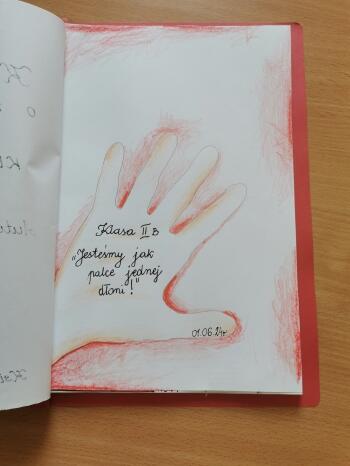 Klasa II B
„Jesteśmy jak
palce jednej
dłoni!"
01.06.24r